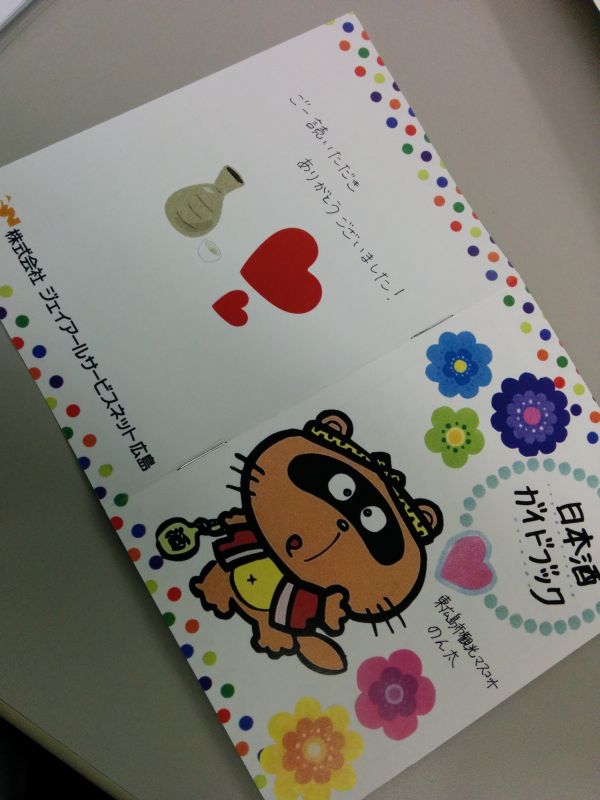 日本酒
ガイドブック
東広島市観光マスコット
のん太
酒
ご一読いただき
ありがとうございました!
株式会社 ジェイアールサービスネット広島